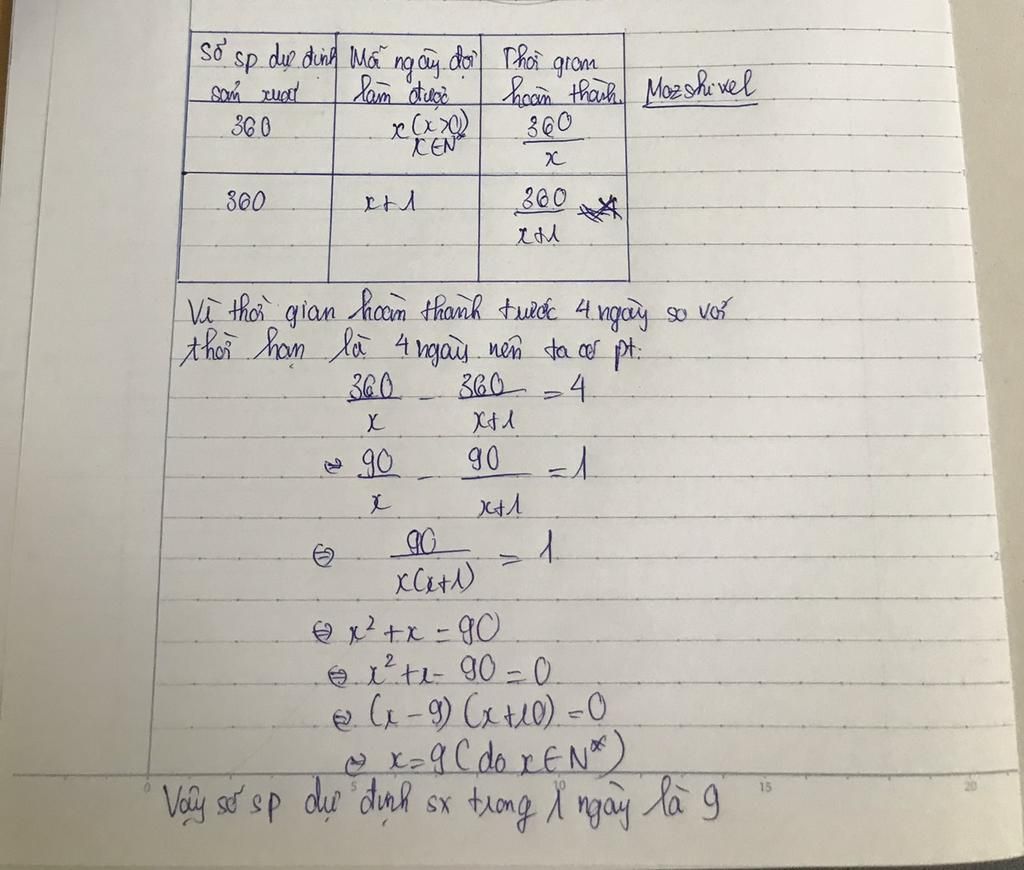 Số sp dự định Mỗi ngày đội Thời gian
sản xuất làm được hoàn thành. Mazshivel
360 x (x>0) 360/x
x∈N*
360 x+1 360/x+1
Vì thời gian hoàn thành trước 4 ngày so với
thời hạn là 4 ngày nên ta có pt:
360/x - 360/x+1 = 4
⇔ 90/x - 90/x+1 = 1
⇔ 90/x(x+1) = 1
⇔ x² + x = 90
⇔ x² + x - 90 = 0
⇔ (x - 9) (x+10) = 0
⇔ x = 9 (do x∈N*)
0 5 10 15 20
Vậy số sp dự định sx trong 1 ngày là 9